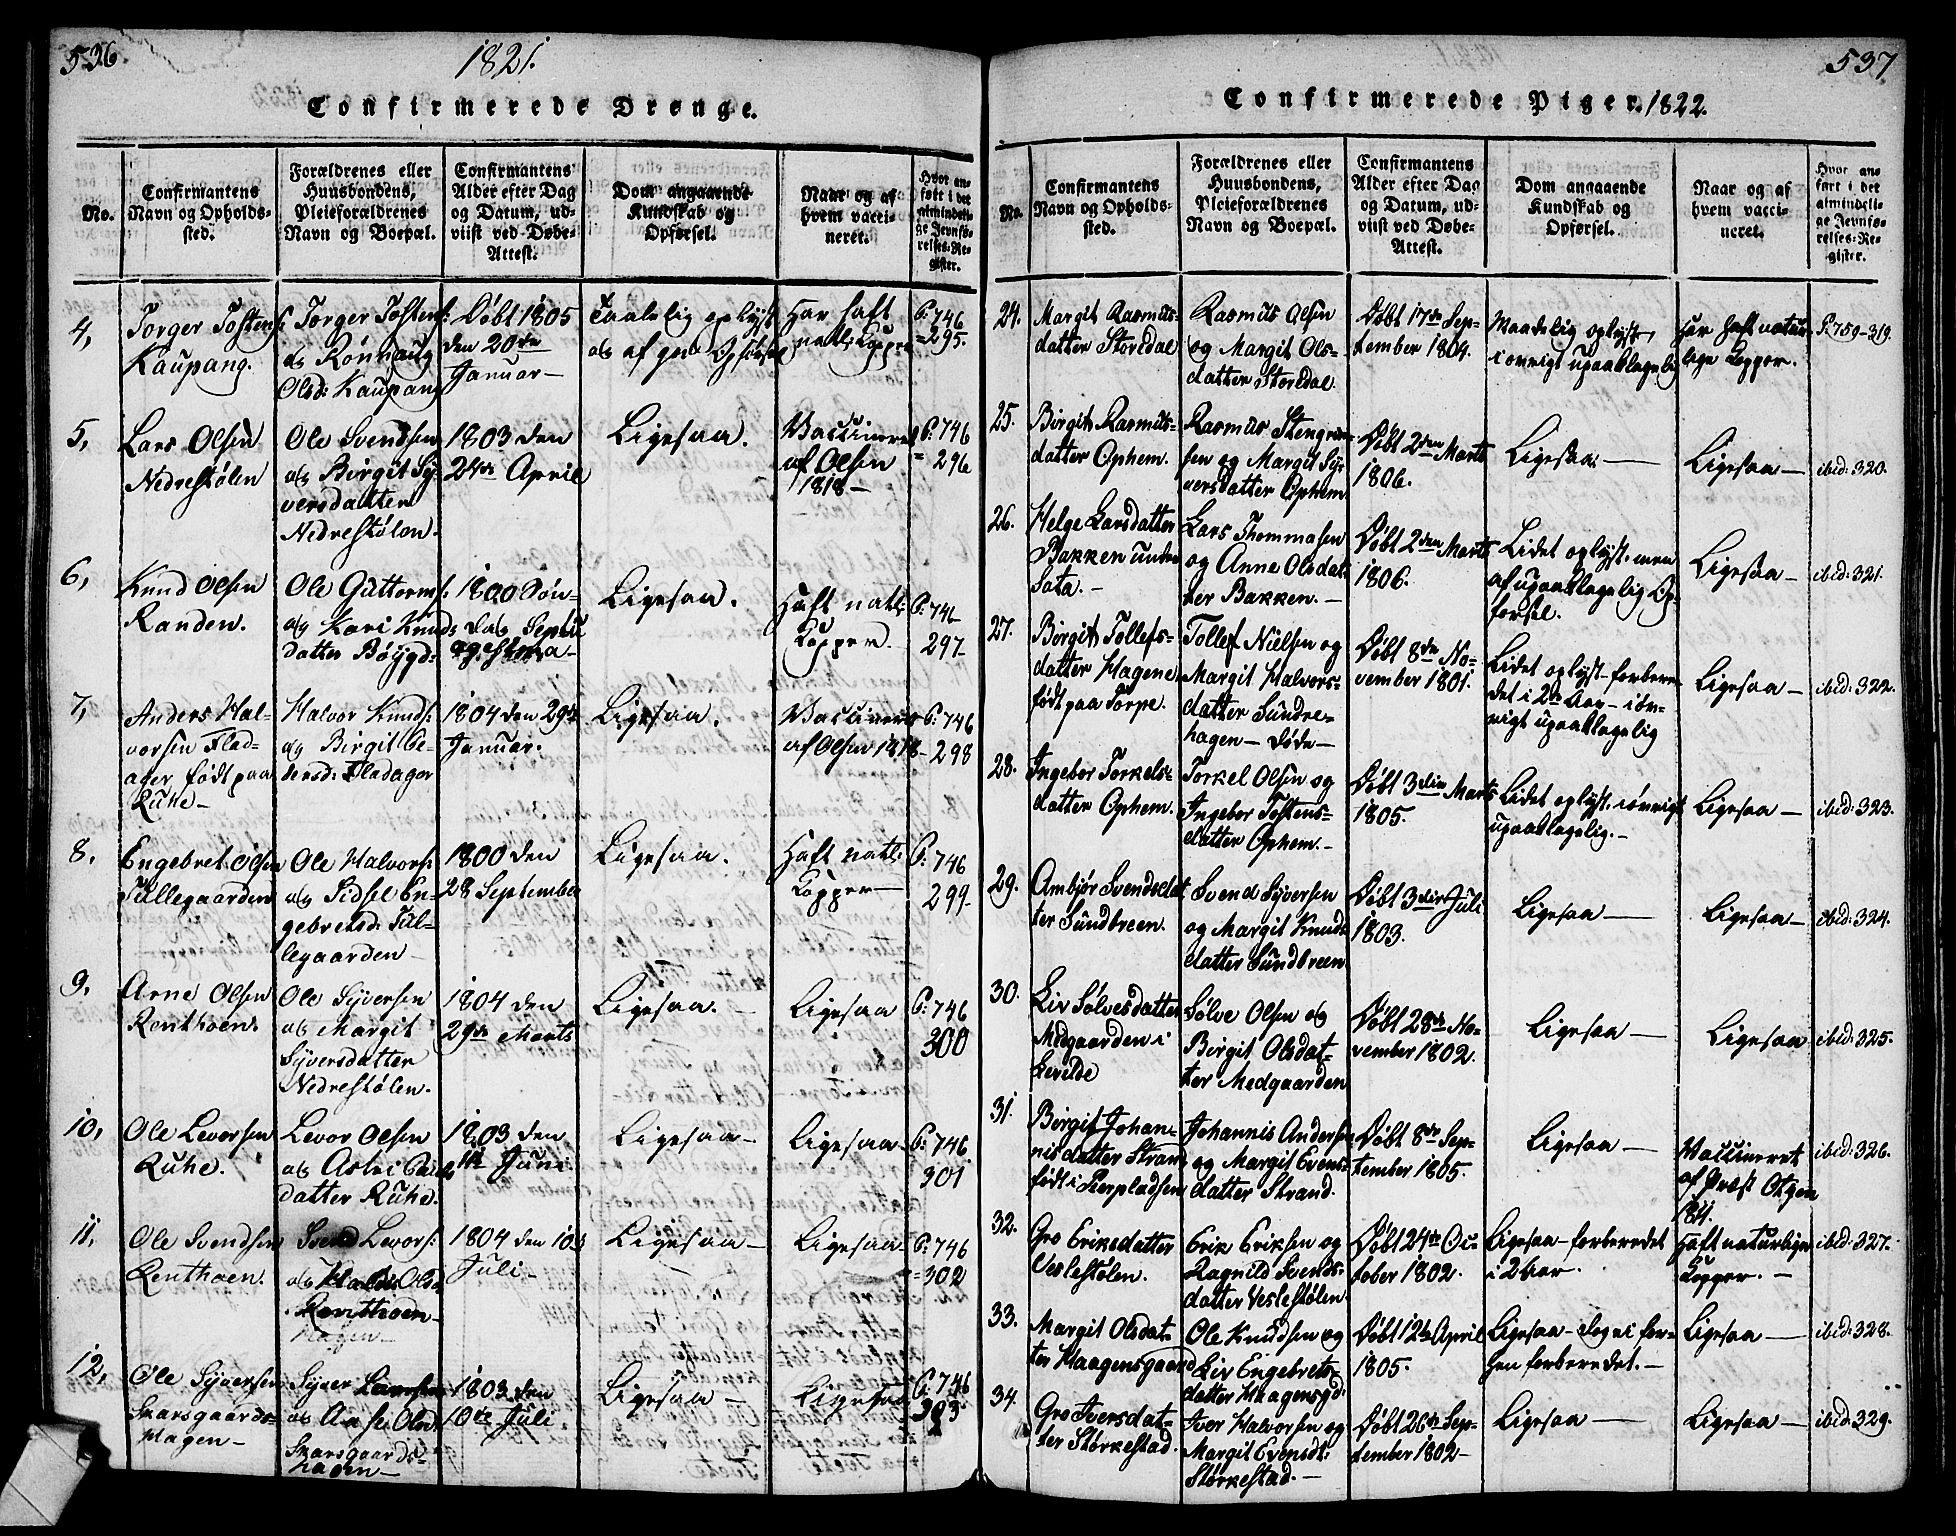 536
1821.
Confirmerede Drenge.
No.
Confirmantens
Navn og Opholds-
sted.
Forældrenes eller
Huusbondens,
Pleieforældrenes
Navn og Boepæl.
Confirmantens
Alder efter Dag
og Datum, ud-
viist ved Døbe-
Attest.
Dom angaaende
Kundskab og
Opførsel.
Naar og af
hvem vacci-
neret.
Hvor an-
ført i det
almindeli-
ge Jevnfø-
relses-Re-
gister.
4,
Torger Tostens:
Kaupang.
Torger Tostens:
og Rønnaug
Olsd: Kaupang
Døbt 1805
den 20de
Januar-
Taalelig oplyst
og af god Opførsel
Har haft
natl: Kopper
P: 746
=295.
5,
Lars Olsen
Nedrestølen
Ole Svendsen
og Birgit Sy-
versdatter
Nedrestølen.
1803 den
24de April
Ligesaa.
Vaccineret
af Olsen
1818-
P: 746
= 296
6,
Knud Olsen
Randen.
Ole Guttorms:
og Kari Knuds
datter Bøygd:
1800 Søn-
dag Septu
agesima-
Ligesaa.
Haft natl:
Kopper.
P: 746
297
7,
Anders Hal-
vorsen Flad-
ager født paa
Ruhe-
Halvor Knuds:
og Birgit Pe-
dersd: Fladager
1804 den 29de
Januar.
Ligesaa.
Vaccineret
af Olsen 1818-
P: 746
298
8,
Engebret Olsen
Tullegaarden
Ole Halvors:
og Sidsel En-
gebretsd: Tul-
legaarden-
1800 den
28 September
Ligesaa.
Haft natl:
Kopper-
P: 746
299
9,
Arne Olsen
Renthoen.
Ole Syversen
og Margit
Syversdatter
Nedrestølen.
1804 den
29de Marts
Ligesaa.
Ligesaa
P: 746
300
10,
Ole Levorsen
Ruhe.
Levor Olsen
og Astri
datter Ruhe.
1803 den
Juni
Ligesaa-
Ligesaa-
P: 746
301
11,
Ole Svendsen
Renthoen.
Svend Levors:
og Olsd:
Renthoen-
hagen-
1804 den 10de
Juli-
Ligesaa-
Ligesaa-
P: 746
=302
12,
Ole Syversen
Skarsgaards-
Hagen-
Syver Larsen
og Aase Olsd:
Skarsgaards-
hagen-
1803 den
10de Juli.
Ligesaa-
Ligesaa
P: 746
303
537
Confirmerede Piger. 1822.
No.
Confirmantens
Navn og Opholds-
sted.
Forældrenes eller
Huusbondens,
Pleieforældrenes
Navn og Boepæl.
Confirmantens
Alder efter Dag
og Datum, ud-
viist ved Døbe-
Attest.
Dom angaaende
Kundskab og
Opførsel.
Naar og af
hvem vacci-
neret.
Hvor an-
ført i det
almindeli-
ge Jevnfø-
relses-Re-
gister.
24.
Margit Rasmus-
datter Storedal
Rasmus Olsen
og Margit Ols-
datter Storedal.
Døbt 17de Sep-
tember 1804.
Maadelig oplyst,
i øvrigt upaaklagelig
Har haft natur-
lige Kopper.
P: 750-319.
25.
Birgit Rasmus-
datter Ophem.
Rasmus Stengrim-
sen og Margit Sy-
versdatter Ophem
Døbt 2den Marts
1806.
Ligesaa.-
Ligesaa-
ibid: 320.
26.
Helge Larsdatter
Bakken under
Sata.-
Lars Thommasen
og Anne Olsdat-
ter Bakken.-
Døbt 2den Marts
1806.
Lidet oplyst, men
af upaaklagelig Op-
førsel.
Ligesaa-
ibid: 321.
27.
Birgit Tollefs-
datter Hagene
født paa Torpe.
Tollef Nielsen og
Margit Halvors-
datter Sundre-
hagen- døde-
Døbt 8de No-
vember 1801.
Lidet oplyst- forbere-
det i 2de Aar- i øv-
rigt upaaklagelig
Ligesaa-
ibid: 322.
28.
Ingebor Torkels-
datter Ophem.
Torkel Olsen og
Ingebor Tostens-
datter Ophem.-
Døbt 3die Marts
1805.
Lidet oplyst, i øvrigt
upaaklagelig.-
Ligesaa-
ibid: 323.
29.
Ambjør Svendsdat-
ter Sundbreen.
Svend Syversen
og Margit Knuds-
datter Sundbreen
Døbt 3die Juli
1803.
Ligesaa-
Ligesaa-
ibid: 324.
30.
Liv Sølvesdatter
Medgaarden i
Levelde
Sølve Olsen og
Birgit Olsdat-
ter Medgaarden
Døbt 28de No-
vember 1802.
Ligesaa-
Ligesaa
ibid: 325.
31.
Birgit Johan-
nisdatter Strand
født i Tierpladsen
Johannis Andersen
og Margit Evens-
datter Strand.
Døbt 8de Sep-
tember 1805.
Ligesaa-
Vaccineret
af Præst
181
ibid: 326.
32.
Gro Eriksdatter
Veslestølen.
Erik Eriksen og
Ragnild Svends-
datter Veslestølen.
Døbt 24de Oc-
tober 1802.
Ligesaa- forberedet
i 2 Aar.
Haft naturlige
Kopper.-
ibid: 327.
33.
Margit Olsdat-
ter Haagensgaard
Ole Knudsen og
Liv Engebrets-
datter Haagensgd:
Døbt 12te April
1805.
Ligesaa- dog i for-
gen forberedet.-
Ligesaa-
ibid: 328.
34.
Gro Iversdat-
ter Størkestad.
Iver Halvorsen og
Margit Evensdt:
Størkestad.-
Døbt 26de Sep-
tember 1802-
Ligesaa-
Ligesaa-
ibid: 329.